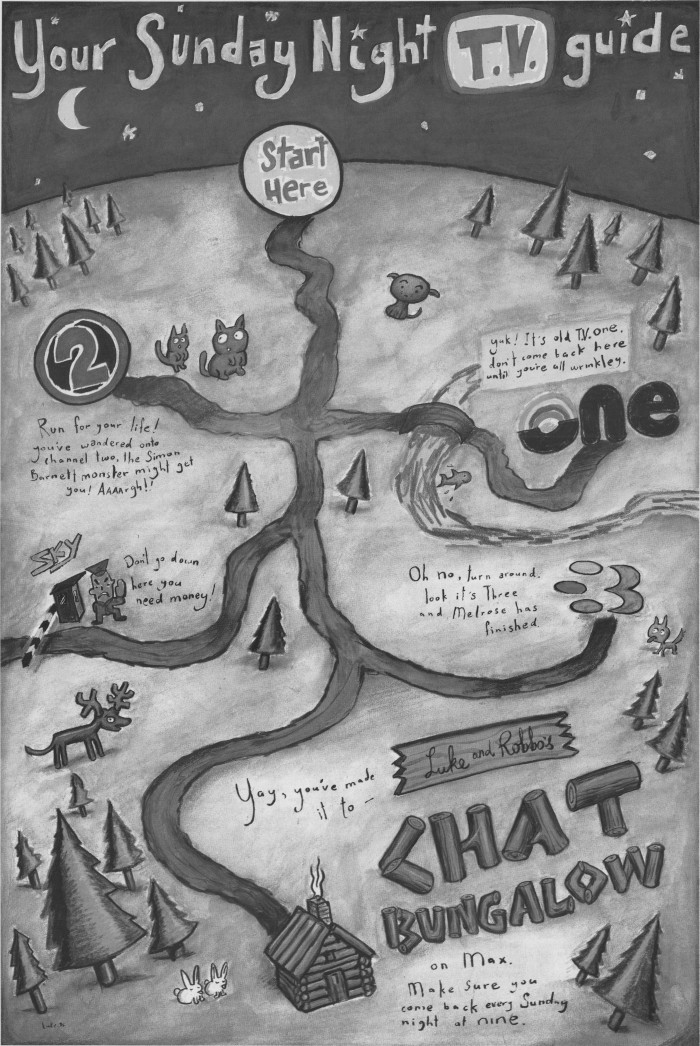 Your Sunday Night T.V. guide
Start
Here
2
Run for your life!
you've wandered onto
channel two, the Simon
Barnett monster might get
you! AAAargh!!
yuk! It's old T.V. one.
don't come back here
until you're all wrinkley.
one
SKY
Don't go down
here you
need money!
Oh no, turn around.
look it's Three
and Melrose has
finished.
3
Yay, you've made
it to –
Luke and Robbo's
CHAT
BUNGALOW
on Max.
Make sure you
come back every Sunday
night at nine.